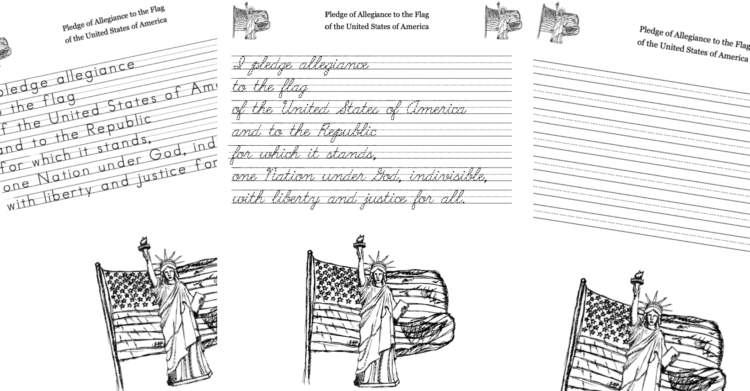 Pledge of Allegiance to the Flag
of the United States of America
pledge allegiance
the flag
of the United States of Am
and to the Republic
for which it stands,
one Nation under God, ind
with liberty and justice for
Pledge of Allegiance to the Flag
of the United States of America
I pledge allegiance
to the flag
of the United States of America
and to the Republic
for which it stands,
one Nation under God, indivisible,
with liberty and justice for all.
Pledge of Allegiance to the Flag
of the United States of America